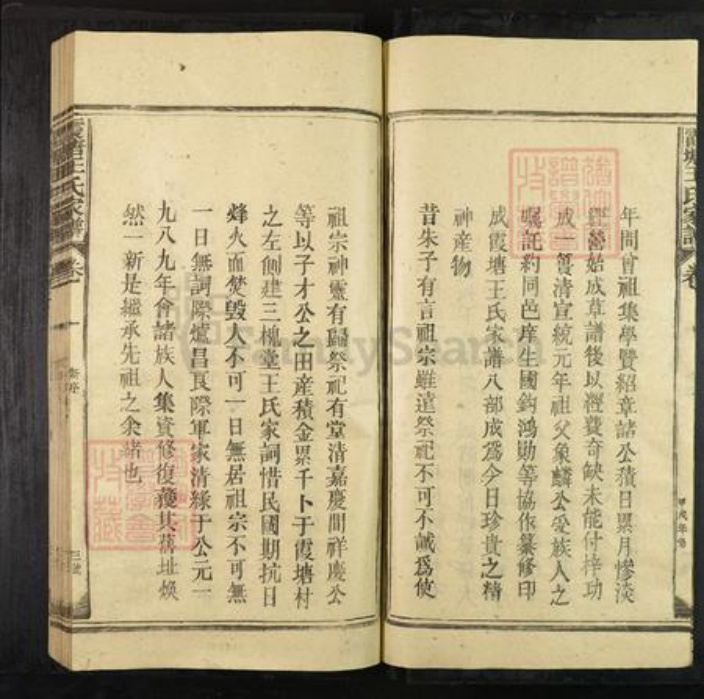 霞塘王氏家譜
卷
年間曾祖集學贊紹章諸公積日累月慘淡
經營始成草譜後以襍費奇缺未能付梓功
成一簣清宣統元年祖父象麟公受族人之
囑託約同邑庠生國鈞鴻勛等協作纂修印
成霞塘王氏家譜八部成爲今日珍貴之精
神産物
昔朱子有言祖宗雖遠祭祀不可不誠爲使
祖宗神靈有歸祭祀有堂清嘉慶間祥慶公
等以子才公之田産積金累千卜于霞塘村
之左側建三槐堂王氏家詞惜民國期抗日
烽火而焚毀人不可一日無居祖宗不可無
一日無詞際爐昌良際軍家清緣于公元一
九八九年會諸族人集資修復獲其舊址煥
然一新是繼承先祖之余緒也
霞塘王氏家譜
卷一
新序
三號
FamilySearch